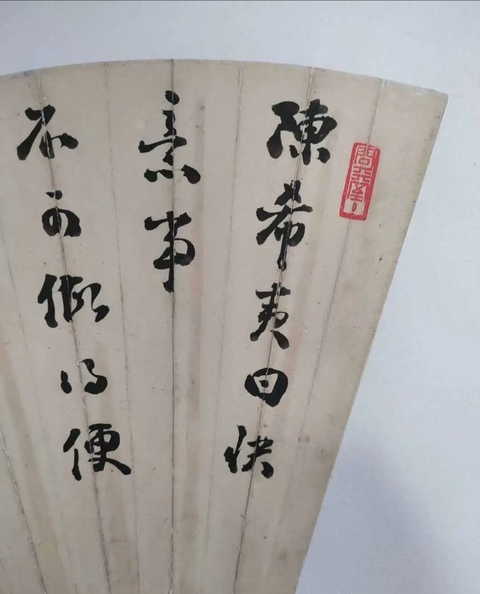 陳希夷曰快
意事
不可做得便